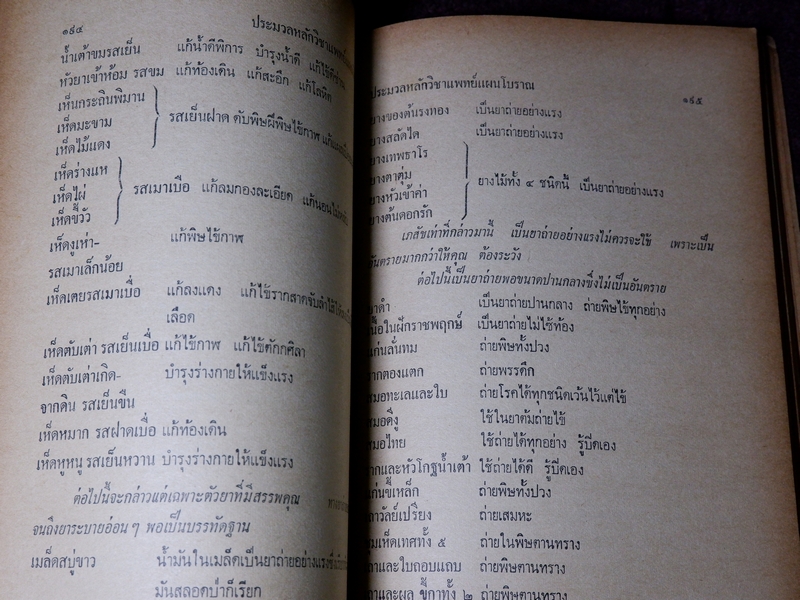 ๑๙๔
ประมวลหลักวิชาแพทย์
น้ำเต้าขมรสเย็น แก้น้ำดีพิการ บำรุงน้ำดี
หัวยาเข้าห้อม รสขม แก้ท้องเดิน แก้สะอึก แก้โลหิต
เห็นกระถินพิมาน
เห็ดมะขาม
เห็ดไม้แดง
รสเย็นฝาด ดับพิษฝีพิษไข้กาฬ
เห็ดร่างแห
เห็ดไผ่
เห็ดขี้วัว
รสเมาเบื่อ แก้ลมกองละเอียด
เห็ดงูเห่า- แก้พิษไข้กาฬ
รสเมาเล็กน้อย
เห็ดเตยรสเมาเบื่อ แก้ลงแดง แก้ไข้รากสาด
เลือด
เห็ดตับเต่า รสเย็นเบื่อ แก้ไข้กาฬ แก้ไข้ดักกศิลา
เห็ดตับเต่าเกิด- บำรุงร่างกายให้แข็งแรง
จากดิน รสเย็นขื่น
เห็ดหมาก รสฝาดเบื่อ แก้ท้องเดิน
เห็ดหูหนู รสเย็นหวาน บำรุงร่างกายให้แข็งแรง
ต่อไปนี้จะกล่าวแต่เฉพาะตัวยาที่มีสรรพคุณ
จนถึงยาระบายอ่อน ๆ พอเป็นบรรทัดฐาน
เมล็ดสบู่ขาว น้ำมันในเมล็ดเป็นยาถ่ายอย่างแรง
มันสลอดป่าก็เรียก
ประมวลหลักวิชาแพทย์แผนโบราณ
๑๙๕
ยางของต้นรงทอง เป็นยาถ่ายอย่างแรง
ยางสลัดได เป็นยาถ่ายอย่างแรง
ยางเทพธาโร
ยางตาตุ่ม
ยางหัวเข้าค่า
ยางต้นดอกรัก
ยางไม้ทั้ง ๔ ชนิดนี้ เป็นยาถ่ายอย่างแรง
เภสัชเท่าที่กล่าวมานี้ เป็นยาถ่ายอย่างแรงไม่ควรจะใช้ เพราะเป็น
อันตรายมากกว่าให้คุณ ต้องระวัง
ต่อไปนี้เป็นยาถ่ายพอขนาดปานกลางซึ่งไม่เป็นอันตราย
ยาดำ เป็นยาถ่ายปานกลาง ถ่ายพิษไข้ทุกอย่าง
เนื้อในฝักราชพฤกษ์ เป็นยาถ่ายไม่ไซ้ท้อง
แก่นลั่นทม ถ่ายพิษทั้งปวง
รากตองแตก ถ่ายพรรดึก
สมอทะเลและใบ ถ่ายโรคได้ทุกชนิดเว้นไว้แต่ไข้
สมอดีงู ใช้ในยาต้มถ่ายไข้
สมอไทย ใช้ถ่ายได้ทุกอย่าง รู้ปิดเอง
รากและหัวโกฐน้ำเต้า ใช้ถ่ายได้ดี รู้ปิดเอง
แก่นขี้เหล็ก ถ่ายพิษทั้งปวง
เถาวัลย์เปรียง ถ่ายเสมหะ
ชุมเห็ดเทศทั้ง ๕ ถ่ายในพิษตานทราง
เถาและใบถอบแถบ ถ่ายพิษตานทราง
เถาและผล ขี้กาทั้ง ๒ ถ่ายพิษตานทราง